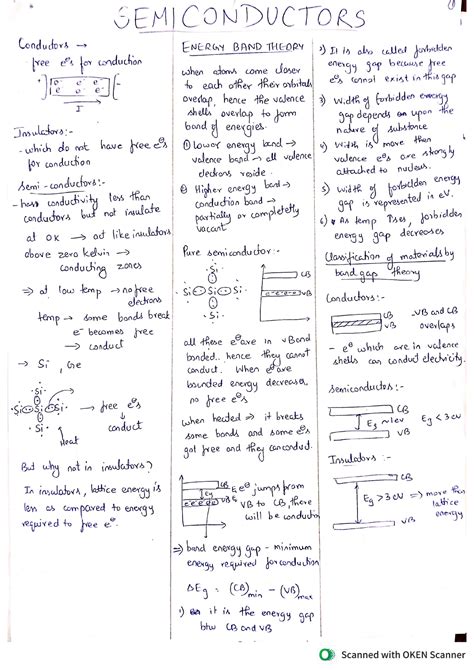 SEMICONDUCTORS
Conductors →
free e⊖s for conduction
I
Insulators:-
- which do not have free e⊖s
for conduction
Semi-conductors:-
- has conductivity less than
conductors but not insulate
at 0K → act like insulators
above zero kelvin →
conducting zones
⇒ at low temp → no free
electrons
temp → some bonds break
e⊖ becomes free
→ conduct
→ Si, Ge
Si
Si Si Si → free e⊖s
Si conduct
heat
But why not in insulators?
In insulators, lattice energy is
less as compared to energy
required to free e⊖
ENERGY BAND THEORY
when atoms come closer
to each other their orbitals
overlap, hence the valence
shells overlap to form
bond of energies.
① lower energy band →
valence band → all valence
electrons reside.
② Higher energy band →
conduction band →
partially or completely
vacant
Pure semiconductor:-
Si
Si Si Si
Si
CB
VB
all these e⊖ are in v Band
bonded.. hence they cannot
conduct. When e⊖ are
bounded energy decreases
no free e⊖s
when heated ⇒ it breaks
some bonds and some e⊖s
got free and they can conduct.
CB
Eg
VB
e⊖ jumps from
VB to CB, there
will be conduction
⇒ band energy gap - minimum
energy required for conduction
ΔEg = (CB)min - (VB)max
1) it is the energy gap
btw CB and VB
2) It is also called forbidden
energy gap because free
e⊖s cannot exist in this gap
3) Width of forbidden energy
gap depends upon the
nature of substance
4) Width is more than
valence e⊖s are strongly
attached to nucleus.
5) Width of forbidden energy
gap is represented in eV.
6) As temp rises, forbidden
energy gap decreases
Classification of materials by
band gap theory
Conductors:-
CB
VB
VB and CB
overlaps
- e⊖ which are in valence
shells can conduct electricity.
semiconductors:-
CB
Eg ~ 1ev Eg < 3ev
VB
Insulators :-
CB
Eg > 3eV ⇒ more than
lattice
energy
VB
Scanned with OKEN Scanner